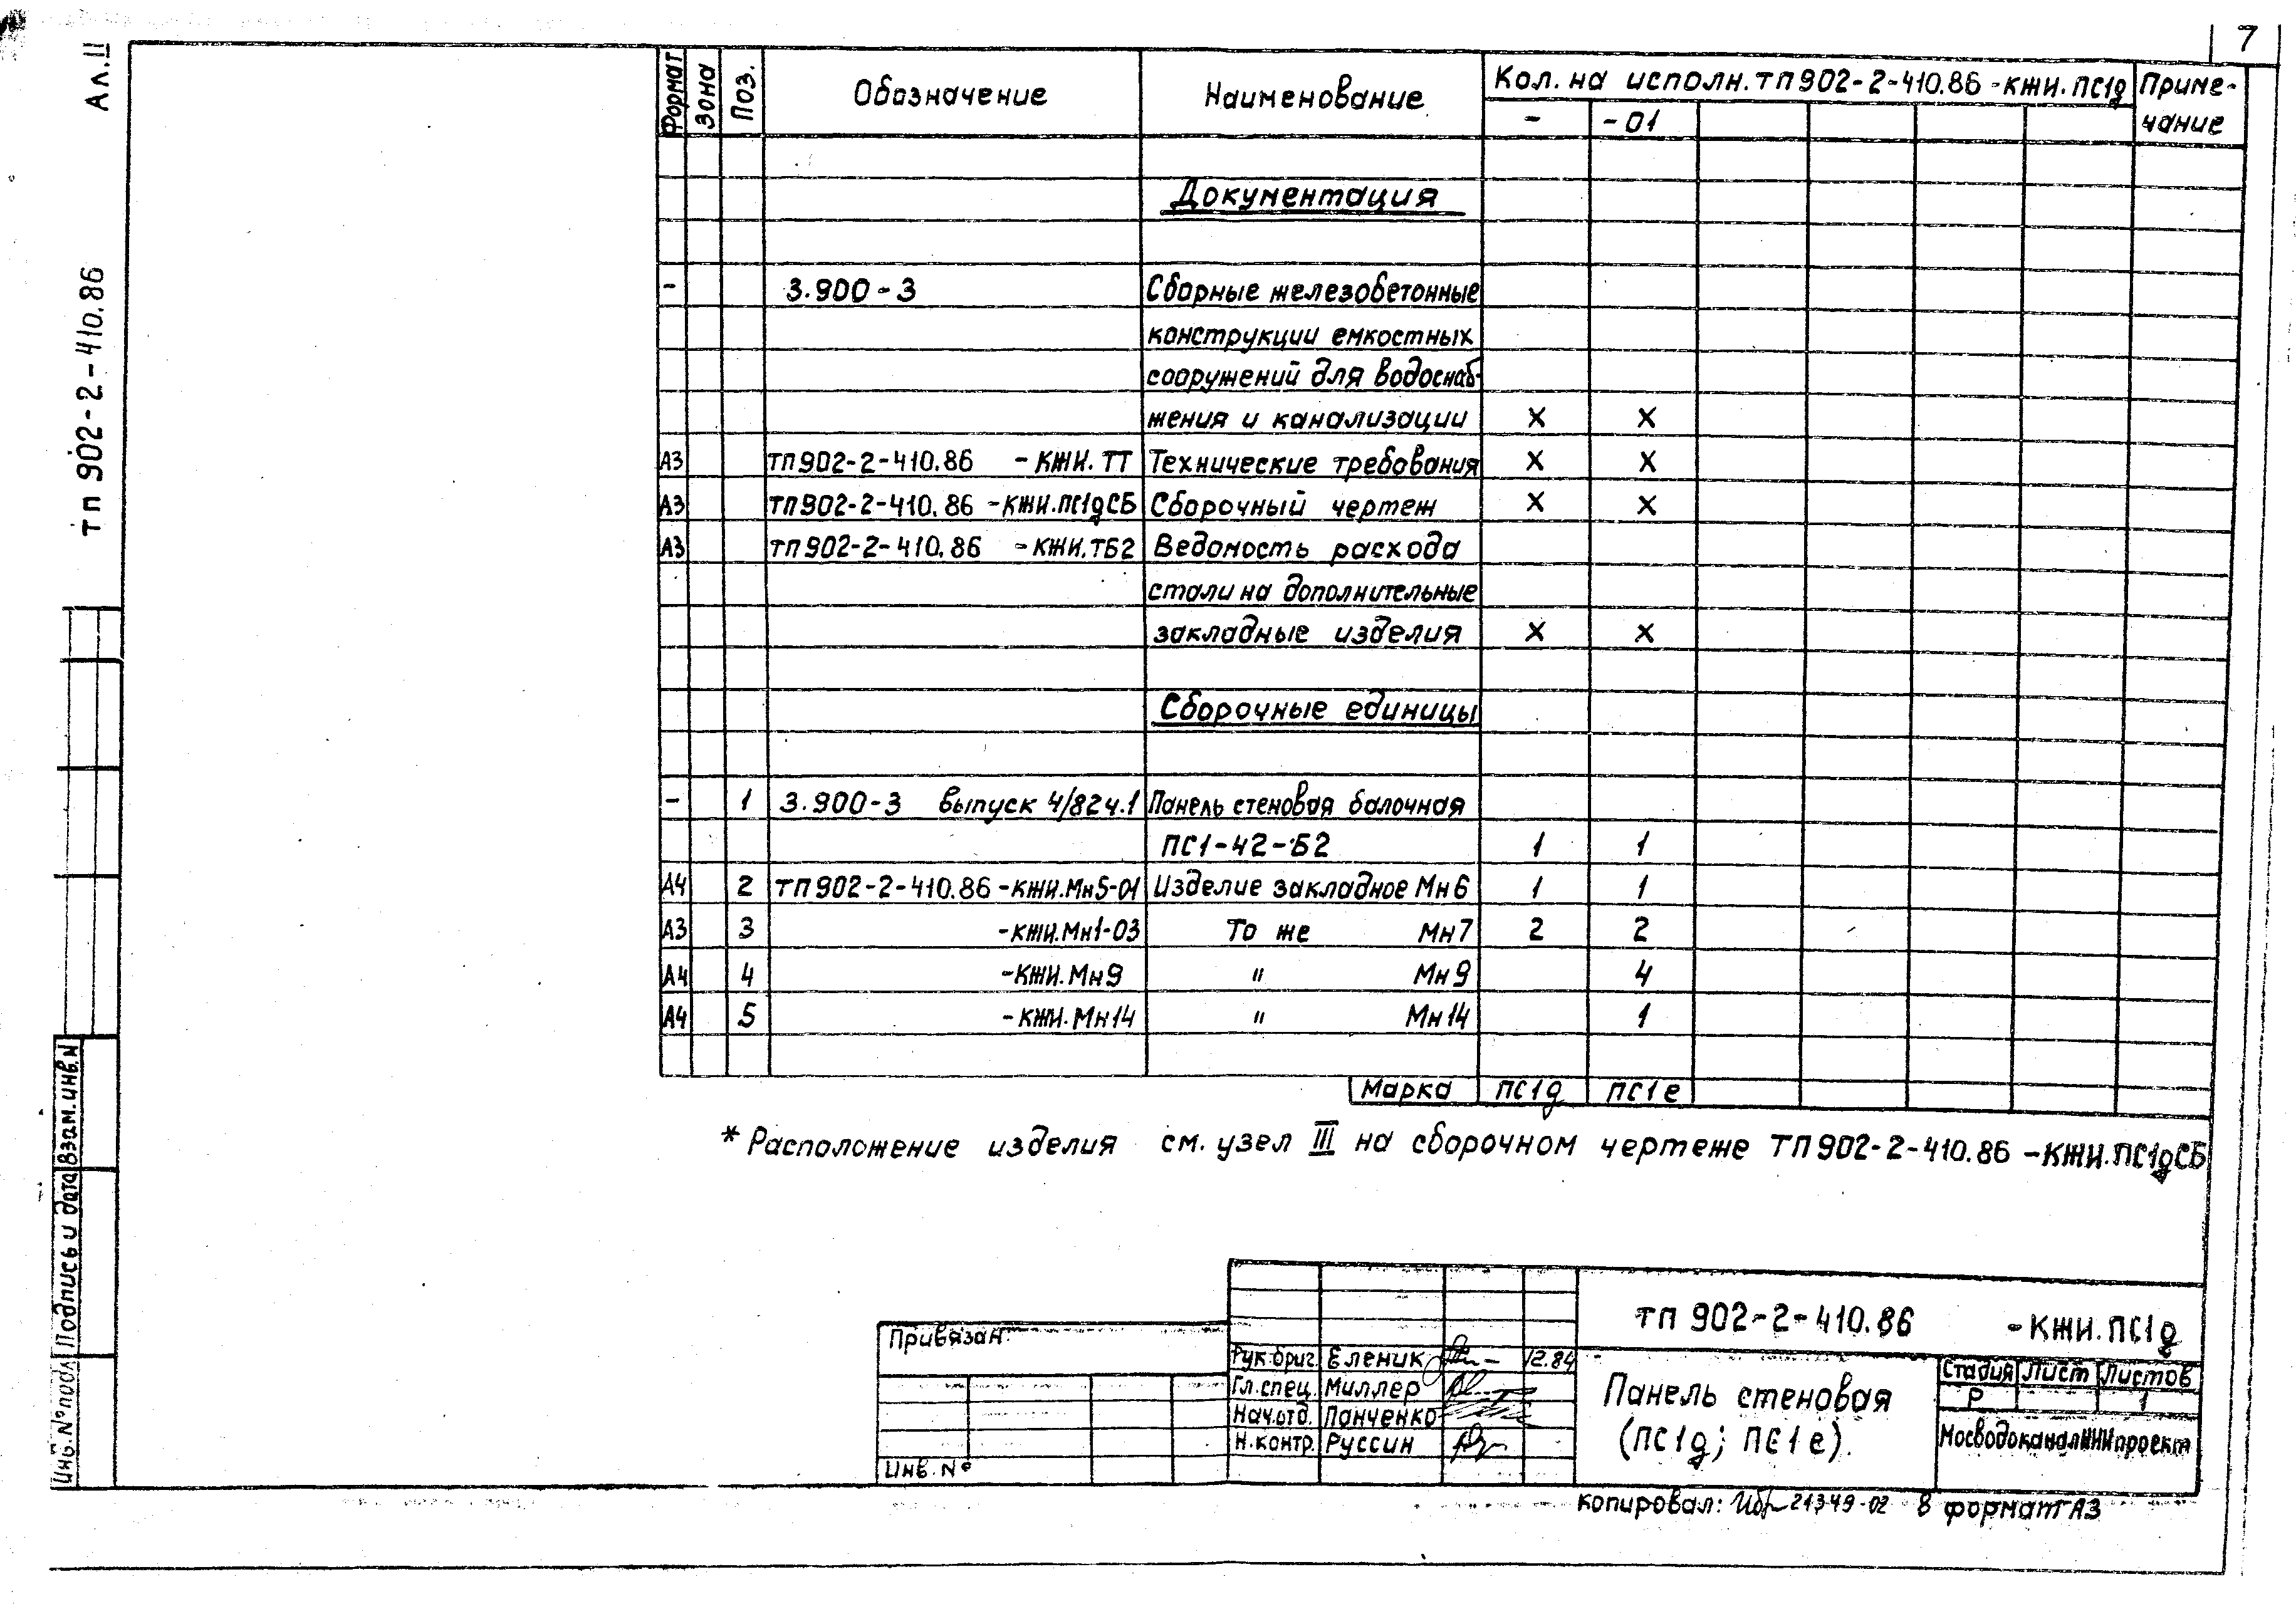 7
Ал. II
тп 902-2-410.86
Формат Зона Поз. Обозначение Наименование Кол. на исполн. тп 902-2-410.86 -КЖИ.ПС1д Приме-
- -01 чание
Документация
- 3.900-3 Сборные железобетонные
конструкции емкостных
сооружений для водоснаб-
жения и канализации х х
А3 тп902-2-410.86 -КЖИ.ТТ Технические требования х х
А3 тп902-2-410.86 -КЖИ.ПС1дСБ Сборочный чертеж х х
А3 тп902-2-410.86 -КЖИ.ТБ2 Ведомость расхода
стали на дополнительные
закладные изделия х х
Сборочные единицы
- 1 3.900-3 выпуск 4/82ч.1 Панель стеновая балочная
ПС1-42-Б2 1 1
А4 2 тп902-2-410.86-КЖИ.Мн5-01 Изделие закладное Мн6 1 1
А3 3 -КЖИ.Мн1-03 То же Мн7 2 2
А4 4 -КЖИ.Мн9 " Мн9 4
А4 5 -КЖИ.Мн14 " Мн14 1
Марка ПС1д ПС1е
* Расположение изделия см. узел III на сборочном чертеже тп902-2-410.86 -КЖИ.ПС1дСБ
Взам.инв.N
Подпись и дата
Инв.№подл
Привязан:
Инв.№
тп 902-2-410.86 -КЖИ.ПС1д
Рук.бриг. Еленик 12.84
Гл.спец. Миллер
Нач.отд. Панченко
Н.контр. Руссин
Панель стеновая
(ПС1д; ПС1е).
Стадия Лист Листов
Р 1
МосводоканалНИИпроект
копировал: 21349-02 8 формат А3